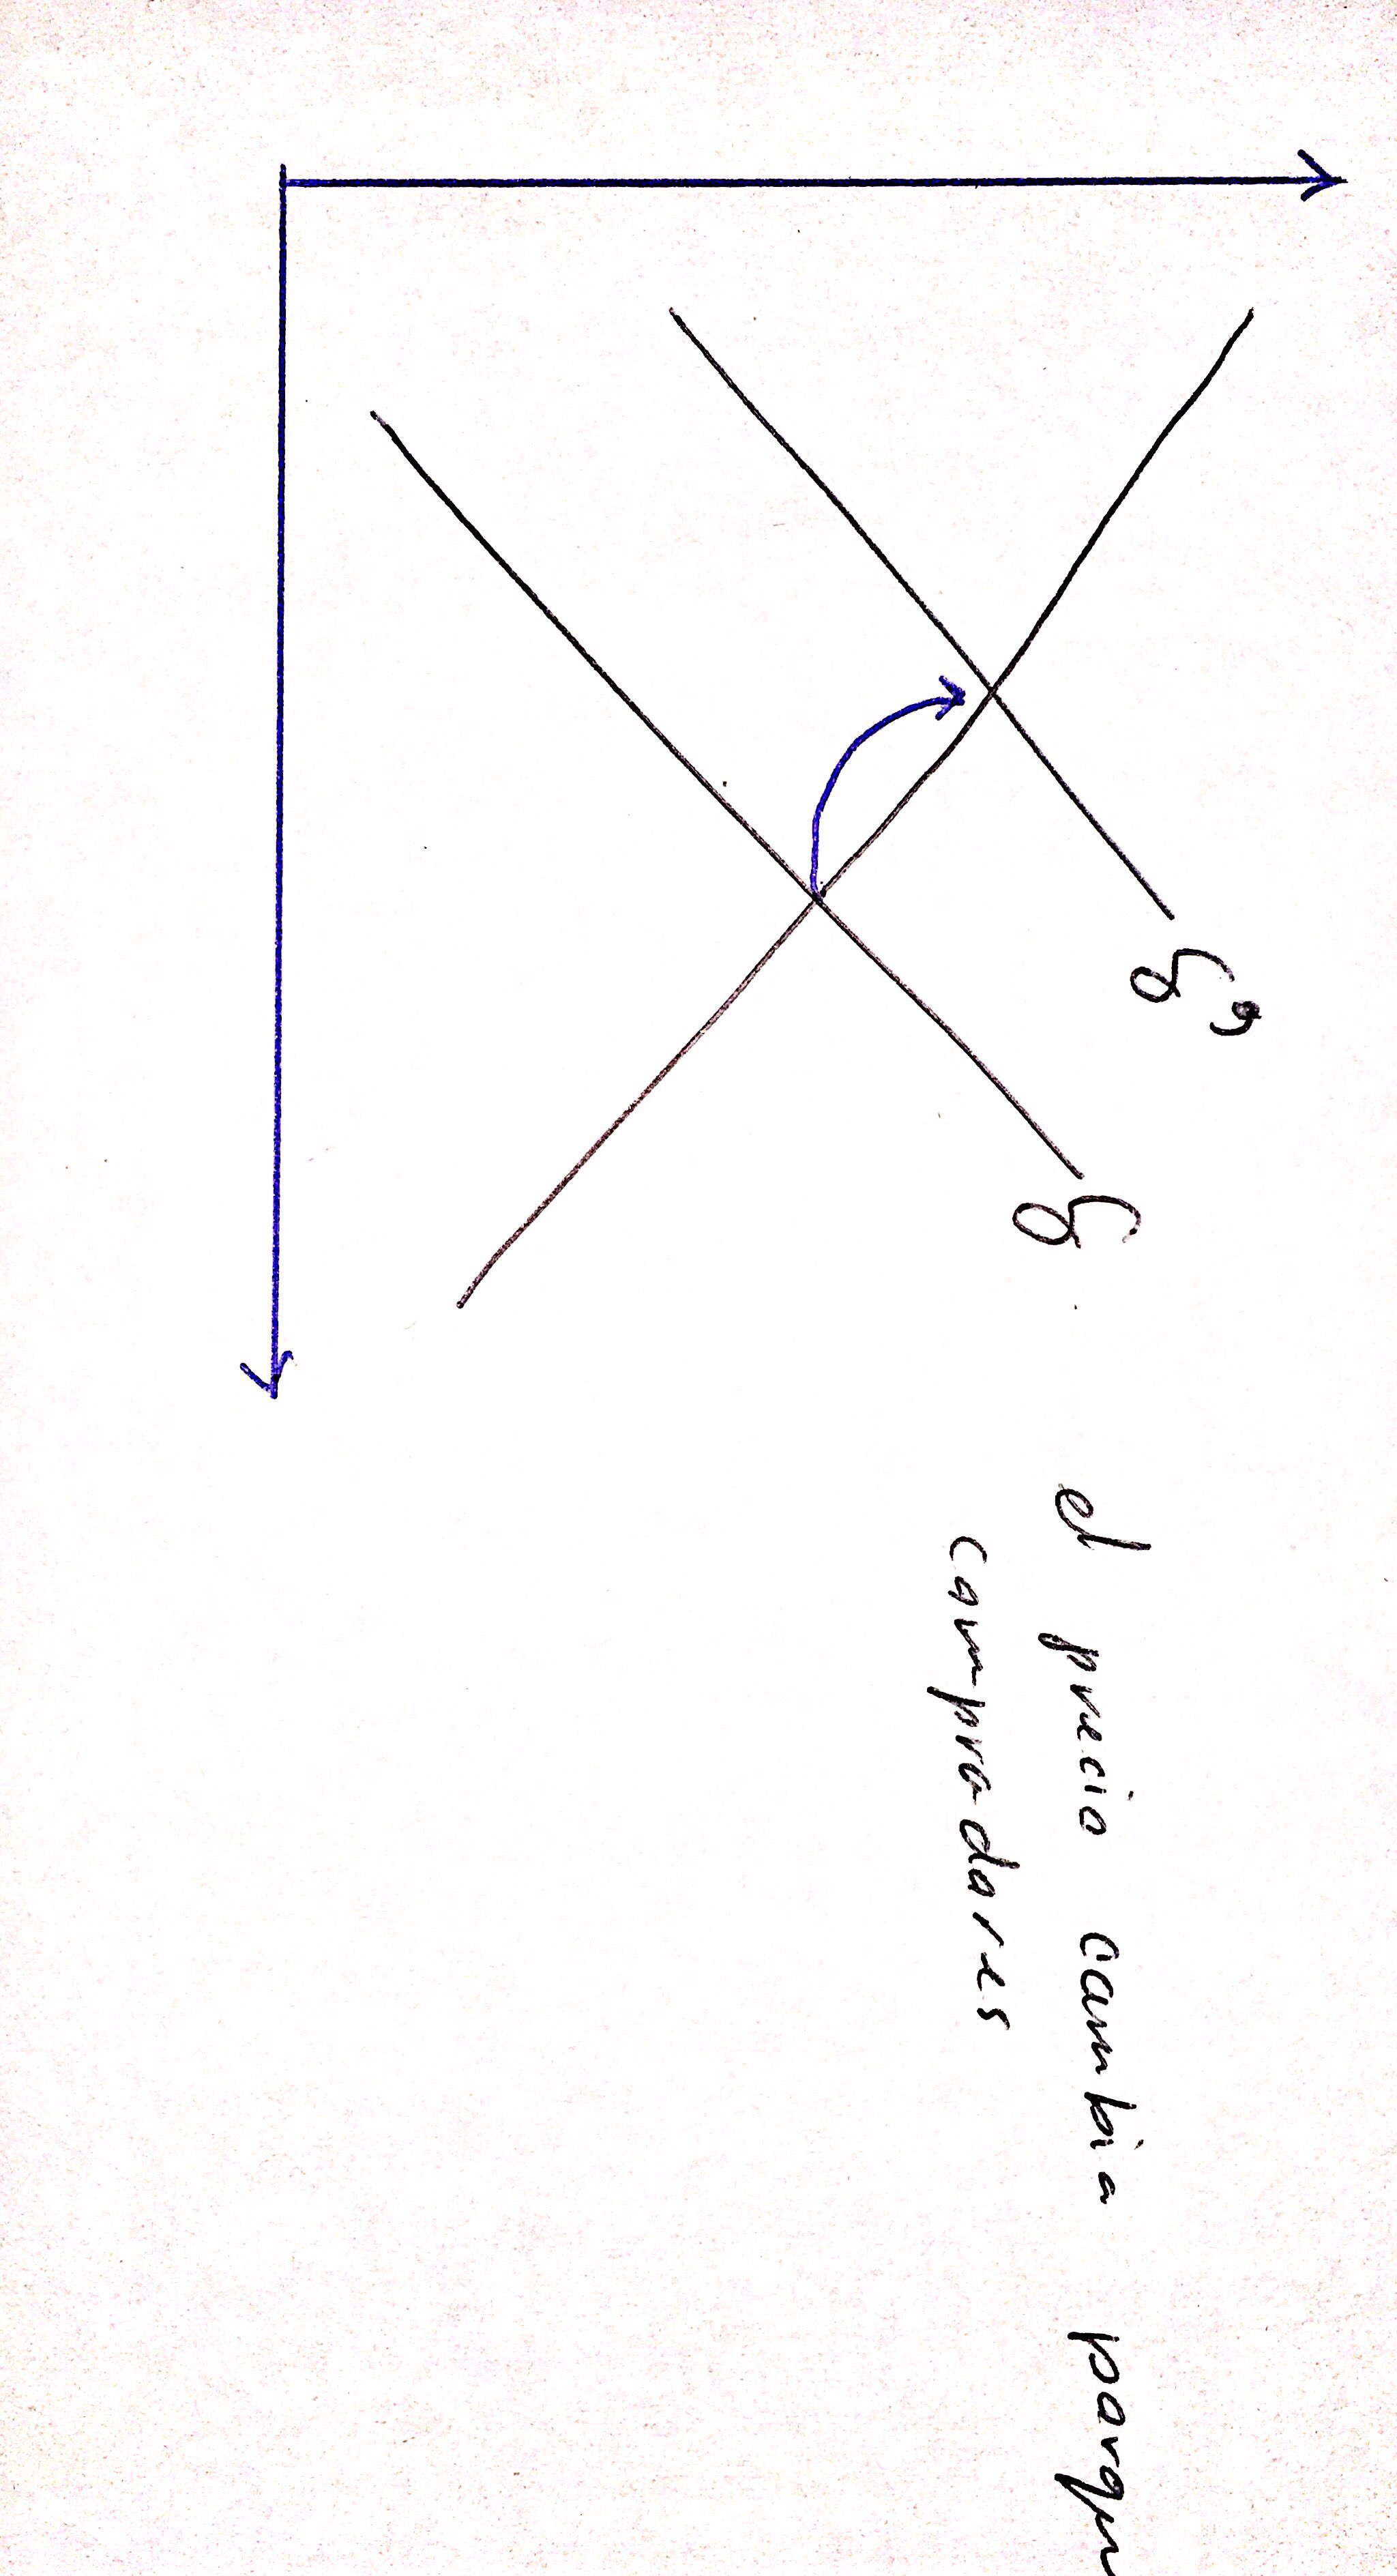 S'
S
el precio cambia porqu
compradores